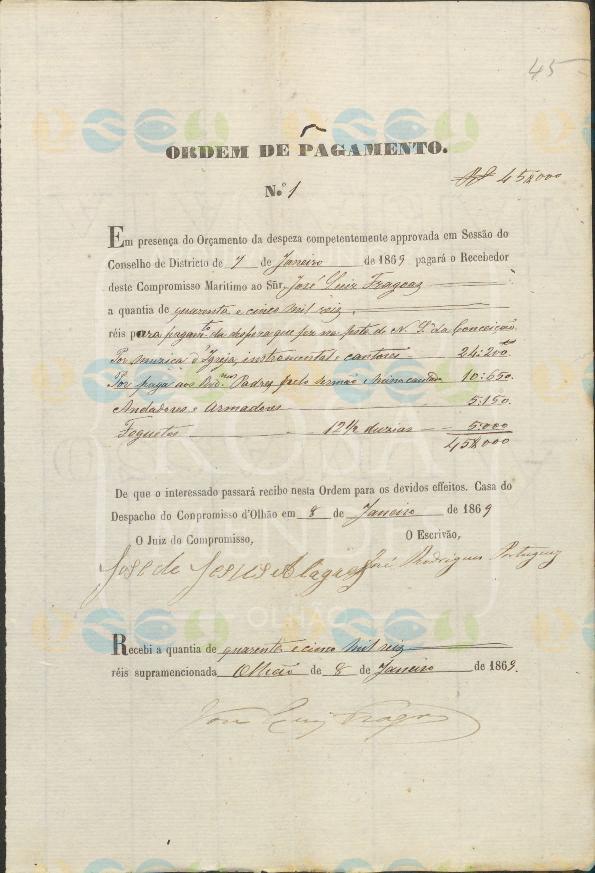 45
ORDEM DE PAGAMENTO.
N.º 1
45$000
Em presença do Orçamento da despeza competentemente approvada em Sessão do
Conselho de Districto de 7 de Janeiro de 1869 pagará o Recebedor
deste Compromisso Maritimo ao Sñr. José Luiz Fragoas
a quantia de quarenta e cinco mil reiz
réis para pagamto da despeza que fez na festa de N. Sra. da Conceição.
Por muzica d'Igreja, instrumental e cantores 24:200
Por paga aos Rvdos Padres pelo sermão e 10:650.
Andadores e Armadores 5:150
Foguetes 12 1/2 duzias 5:000
45$000
De que o interessado passará recibo nesta Ordem para os devidos effeitos. Casa do
Despacho do Conpromisso d'Olhão em 8 de Janeiro de 1869
O Juiz do Compromisso,
O Escrivão,
José de Jesus Alagres
José Rodrigues Portuguez
Recebi a quantia de quarenta e cinco mil reiz
réis supramencionada Olhão de 8 de Janeiro de 1869.
José Luiz Fragoas
ROSA
OLHÃO